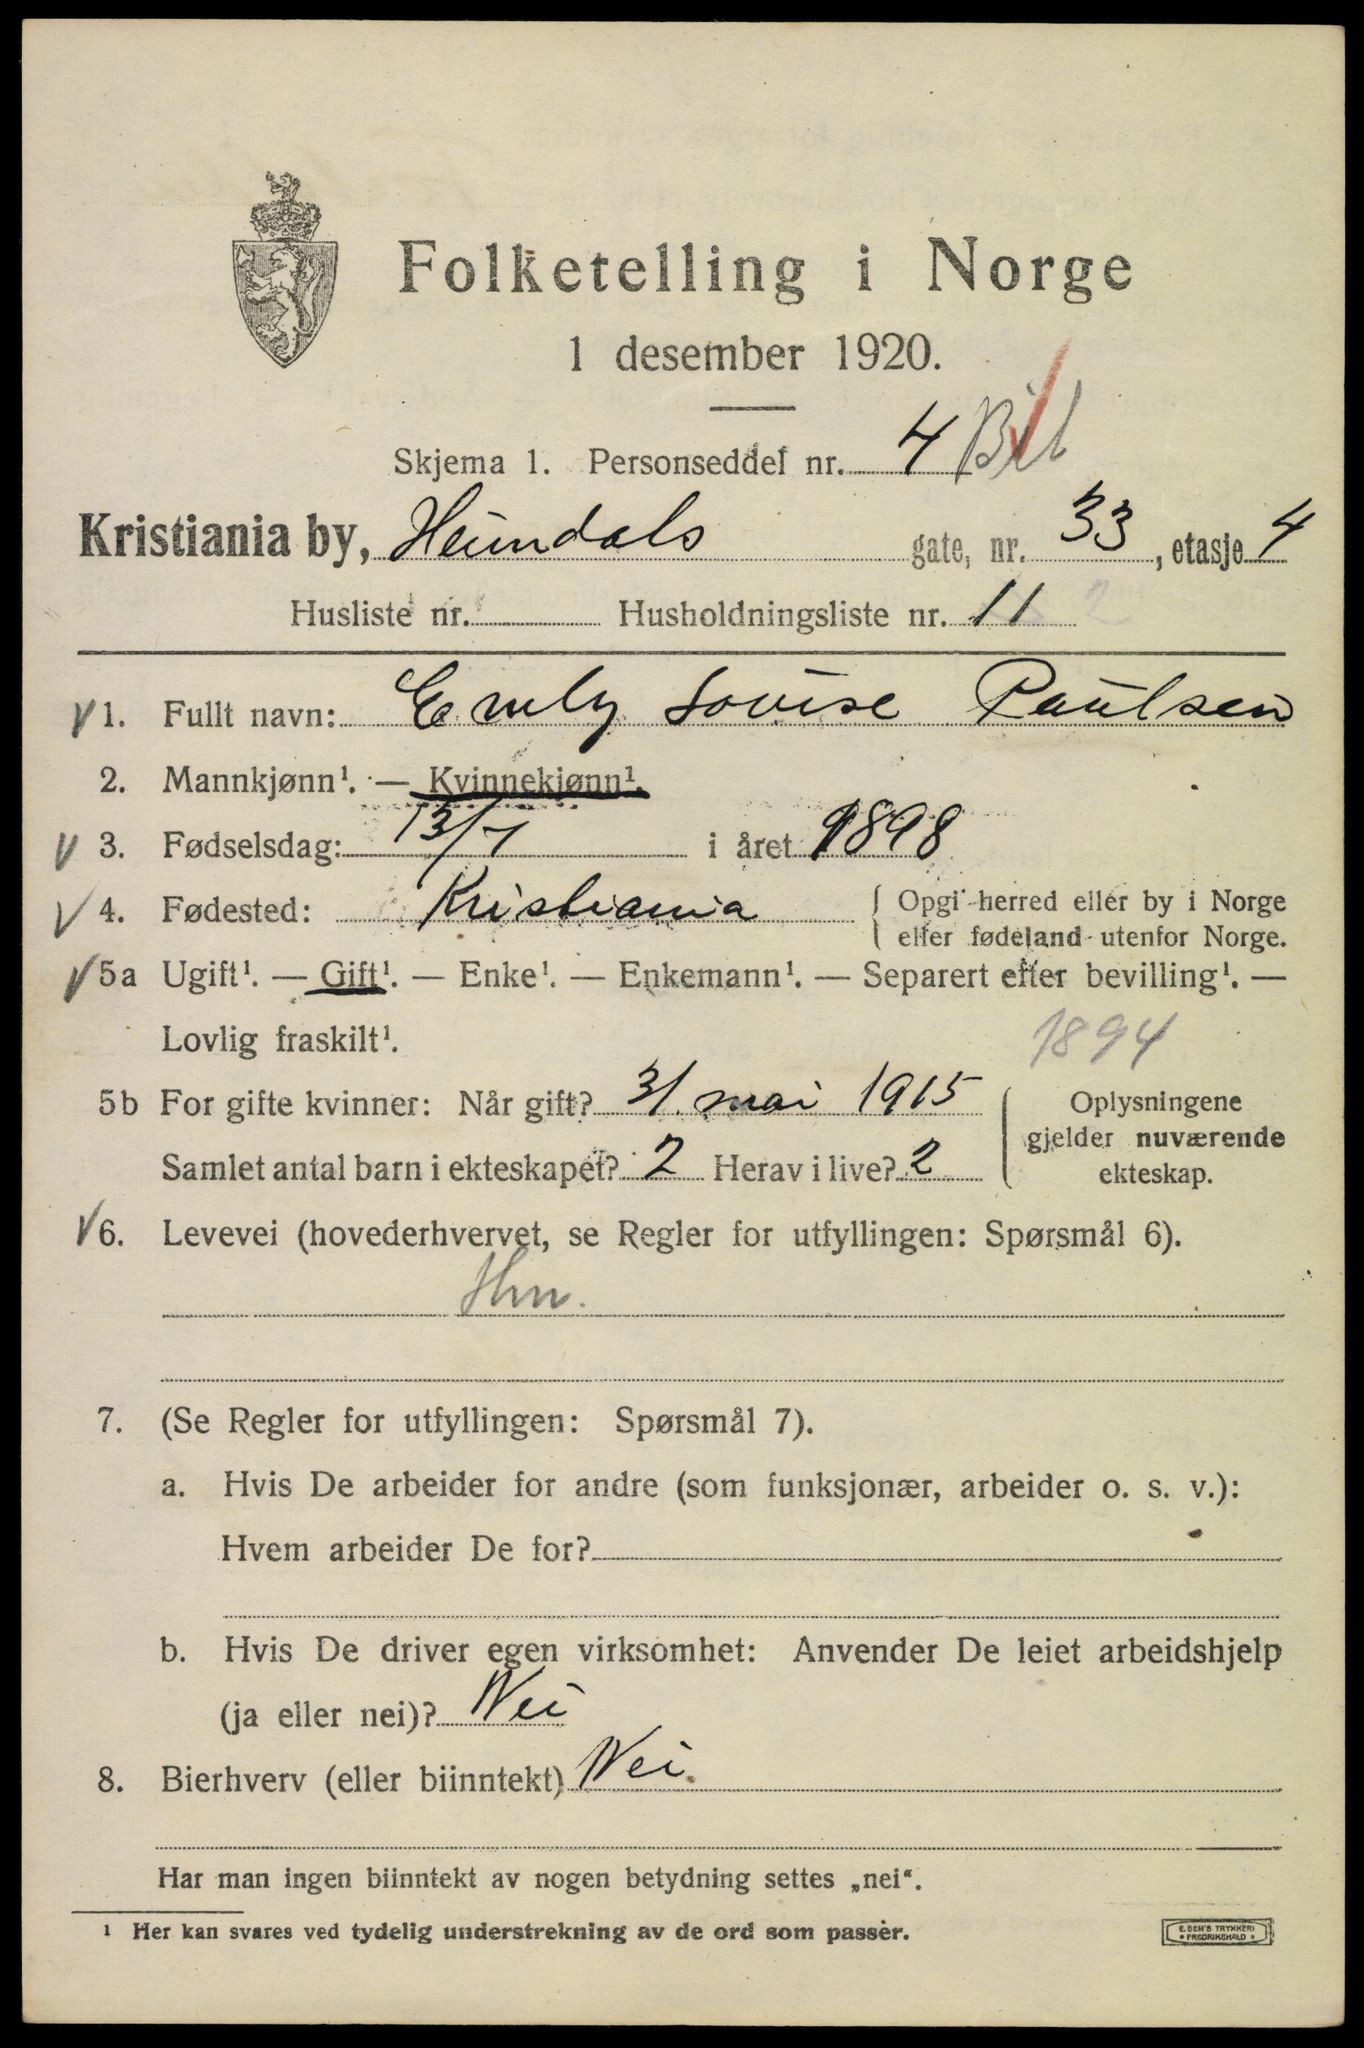 Folketelling i Norge
1 desember 1920.
Skjema 1. Personseddel nr. 4
Kristiania by, Heimdals gate, nr. 33, etasje 4
Husliste nr. Husholdningsliste nr. 11 2
1. Fullt navn: Emly Lovise Paulsen
2. Mannkjønn¹. — Kvinnekjønn¹.
3. Fødselsdag: 13/7 i året 1898
4. Fødested: Kristiania { Opgi herred eller by i Norge
eller fødeland utenfor Norge.
5a Ugift¹. — Gift¹. — Enke¹. — Enkemann¹. — Separert efter bevilling¹. —
Lovlig fraskilt¹. 1894
5b For gifte kvinner: Når gift? 31. mai 1915 { Oplysningene
gjelder nuværende
Samlet antal barn i ekteskapet? 2 Herav i live? 2 ekteskap.
6. Levevei (hovederhvervet, se Regler for utfyllingen: Spørsmål 6).
Hm.
7. (Se Regler for utfyllingen: Spørsmål 7).
a. Hvis De arbeider for andre (som funksjonær, arbeider o. s. v.):
Hvem arbeider De for?
b. Hvis De driver egen virksomhet: Anvender De leiet arbeidshjelp
(ja eller nei)? Nei
8. Bierhverv (eller biinntekt) Nei.
Har man ingen biinntekt av nogen betydning settes „nei“.
¹ Her kan svares ved tydelig understrekning av de ord som passer.
E. SEM'S TRYKKERI
FREDRIKSHALD